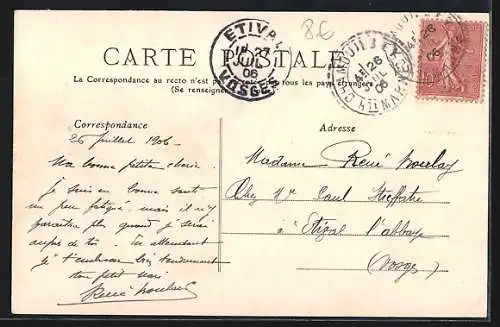 8.6
ETIVAL
18 27
06
VOSGES
CARTE POSTALE
La Correspondance au recto n'est pas tous les pays étrangers
(Se renseigner
26
JUIL
06
Hte MARNE
Correspondance
Adresse
26 juillet 1906
Ma bonne petite chérie
Je suis en bonne santé
un peu fatigué mais il n'y
paraîtra plus quand je serai
auprès de toi. En attendant
je t'embrasse bien tendrement
ton petit mari
René
Madame René
Chez Mr Paul
à Etival l'abbaye
(Vosges)